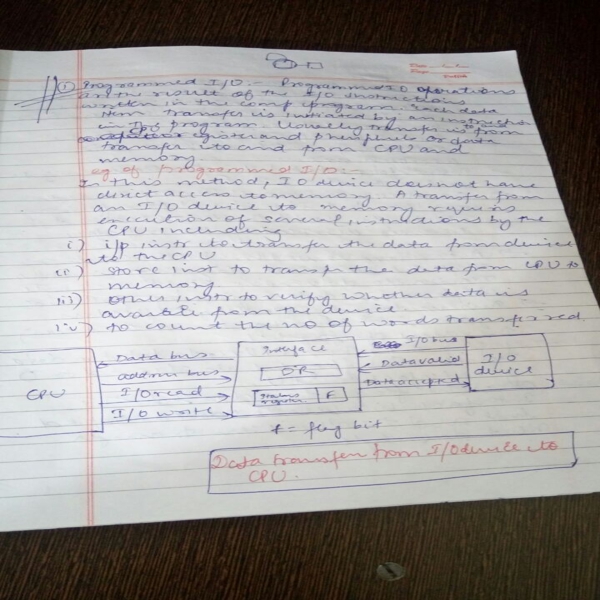 (i) Programmed I/O :- Programmed IO operations
are the result of the I/O instructions
written in the comp. program. Each data
item transfer is initiated by an instruction
in the program. Usually transfer is from
register and peripherals or data
transfer to and from CPU and
memory
eg of programmed I/O:-
In this method, IO device doesnot have
direct access to memory. A transfer from
an I/O device to memory requires
execution of several instructions by the
CPU including
i) i/p instr to transfer the data from device
to the CPU
ii) store inst to transfer the data from CPU to
memory
iii) other instr to verify whether data is
available from the device
iv) to count the no of words transferred.
CPU
Data bus
address bus
I/O read
I/O write
Interface
DR
Status register
F
I/O bus
Data valid
Data accepted
I/O device
F = flag bit
Data transfer from I/O device to
CPU.